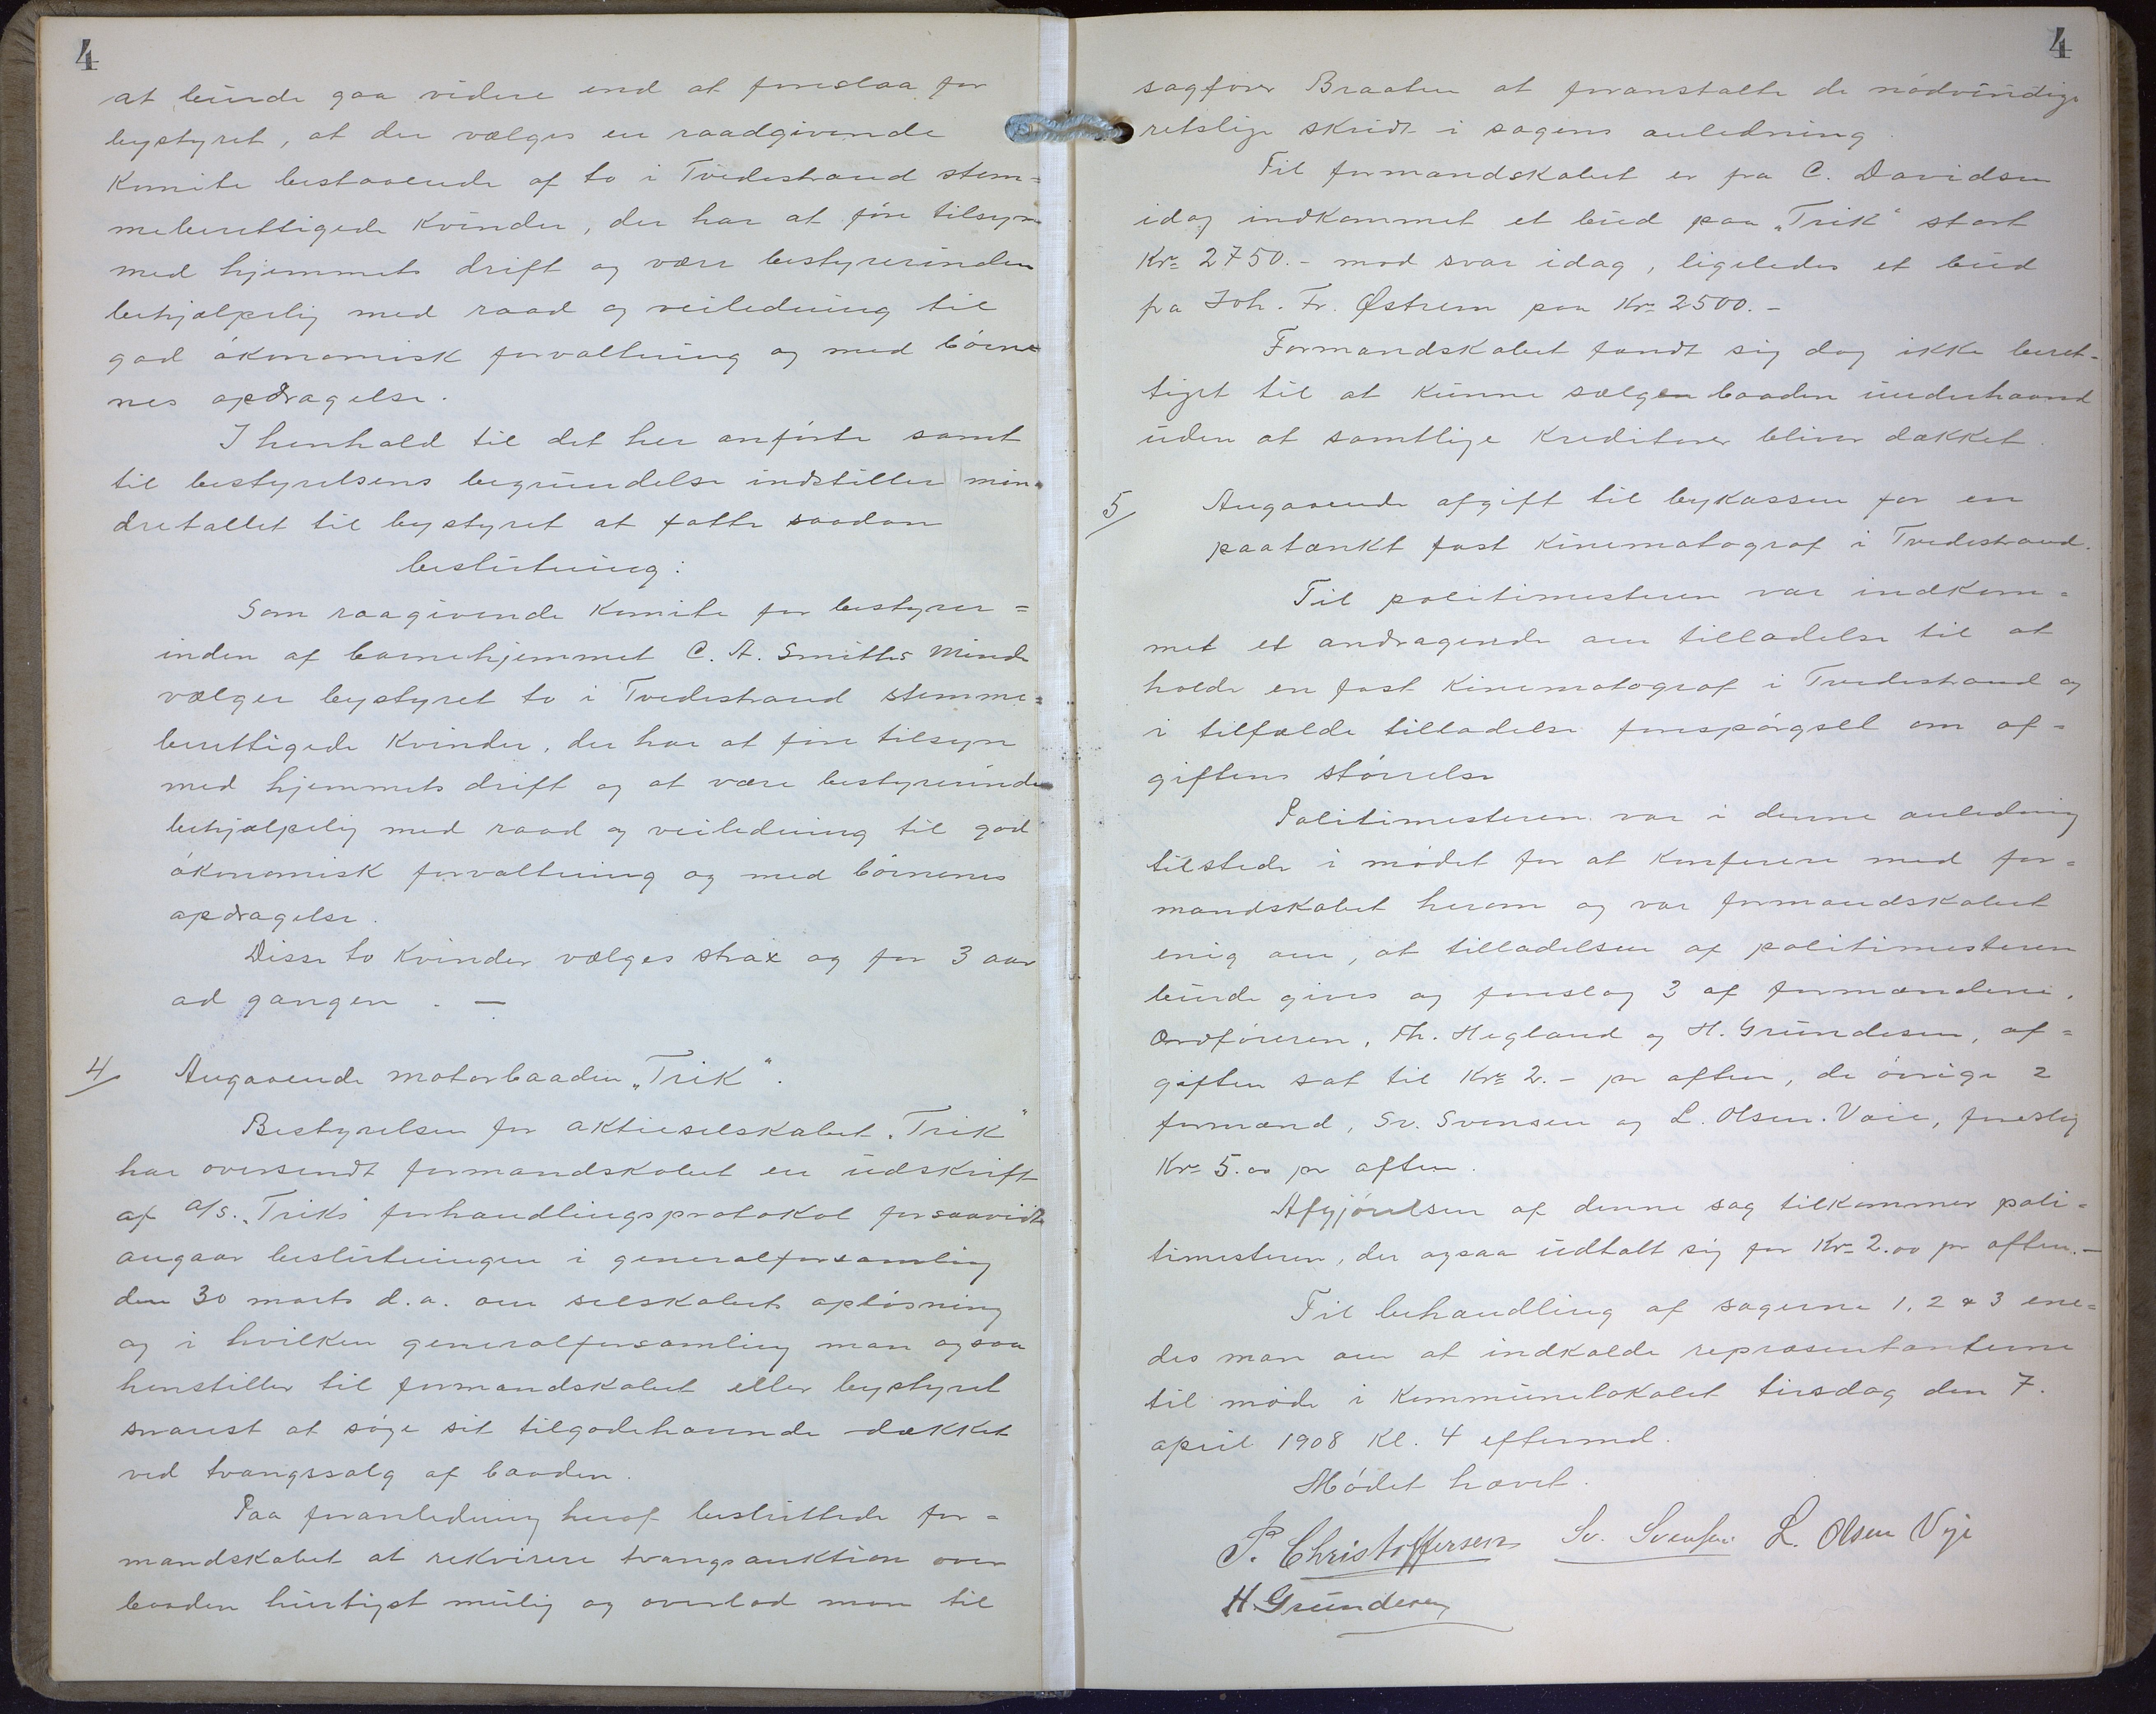 4
at burde gaa videre end at foreslaa for
bystyret, at der vælges en raadgivende
Komite bestaaende af to i Tvedestrand stem=
meberettigede Kvinder, der har at føre tilsyn
med hjemmets drift og være bestyrerinden
behjælpelig med raad og veiledning til
god økonomisk forvaltning og med børne
nes opdragelse.
I henhold til det her anførte samt
til bestyrelsens begrundelse indstiller min=
dretallet til bystyret at fatte saadan
beslutning:
Som raagivende Komite for bestyrer=
inden af barnehjemmet C. A. Smiths Minde
vælger bystyret to i Tvedestrand stemme=
berettigede Kvinder, der har at føre tilsyn
med hjemmets drift og at være bestyrerinden
behjælpelig med raad og veiledning til god
økonomisk forvaltning og med børnenes
opdragelse.
Disse to Kvinder vælges strax og for 3 aar
ad gangen. —
4/ Angaaende motorbaaden „Trik“.
Bestyrelsen for aktieselskabet „Trik“
har oversendt formandskabet en udskrift
af A/S. „Triks“ forhandlingsprotokol forsaavidt
angaar beslutningen i generalforsamling
den 30 marts d.a. om selskabets opløsning
og i hvilken generalforsamling man ogsaa
henstiller til formandskabet eller bystyret
snarest at søge sit tilgodehavende dækket
ved tvangssalg af baaden.
Paa foranledning heraf besluttede for=
mandskabet at rekvirere tvangsauktion over
baaden hurtigst mulig og overlod man til
4
sagfører Braaten at foranstalte de nødvendige
retslige skridt i sagens anledning.
Til formandskabet er fra C. Davidsen
idag indkommet et bud paa „Trik“ stort
Kr. 2750.- mod svar idag, ligeledes et bud
fra Joh. Fr. Østrem paa Kr. 2500.-
Formandskabet fandt sig dog ikke beret=
tiget til at kunne sælgen baaden underhaand
uden at samtlige Kreditorer bliver dækket.
5/ Angaaende afgift til bykassen for en
paatænkt fast Kinematograf i Tvedestrand.
Til politimesteren var indkom=
met et andragende om tilladelse til at
holde en fast Kinematograf i Tvedestrand og
i tilfælde tilladelse forespørgsel om af=
giftens størrelse
Politimesteren var i denne anledning
tilstede i mødet for at Konferere med for=
mandskabet herom og var formandskabet
enig om, at tilladelsen af politimesteren
burde gives og foreslog 3 af formændene,
Ordføreren, Th. Hegland og H. Gründesen, af=
giften sat til Kr. 2.- pr aften, de øvrige 2
formænd, Sv. Svensen og L. Olsen-Vaie, foreslog
Kr. 5.00 pr aften.
Afgjørelsen af denne sag tilkommer poli=
timesteren, der ogsaa udtalt sig for Kr. 2.00 pr aften.—
Til behandling af sagerne 1, 2 & 3 ene=
des man om at indkalde repræsentanterne
til møde i Kommunelokalet tirsdag den 7.
april 1908 Kl. 4 eftermd.
Mødet hævet.
P. Christoffersen Sv. Svensen L. Olsen Veje
H. Gründesen